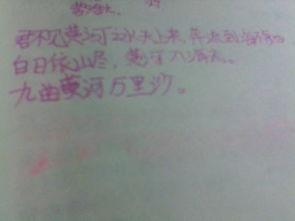 君不见黄河之水天上来，奔流到海不
白日依山尽，黄河入海流。
九曲黄河万里沙。